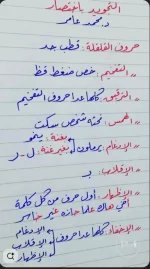 التجويد باختصار
د. محمد عامر
حروف القلقلة: قطب جد
" التفخيم: خص ضغط قظ
" الترقيق: كلها عدا حروف التفخيم
" الهمس: فحثه شخص سكت
" الإدغام: يرملون بغنة: ينمو
بغير غنة: ل - ر
" الإقلاب: ب
" الإظهار: أول حرف من كل كلمة
أخي هاك علما حازه غير خاسر
" الإخفاء: كلها عدا حروف الإدغام
الإقلاب
الإظهار